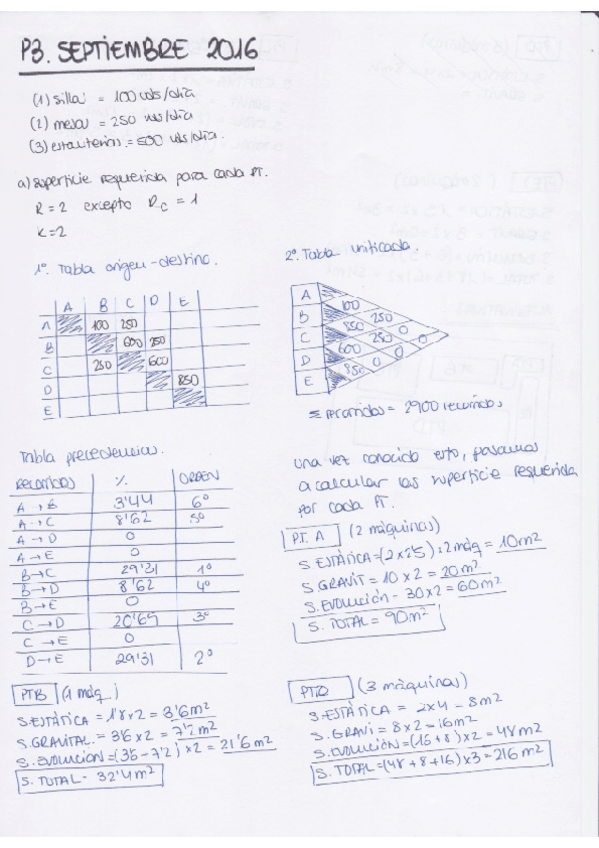 P3. SEPTIEMBRE 2016
(1) silla = 100 uds/día
(2) mesa = 250 uds/día
(3) estanterías = 500 uds/día.
a) superficie requerida para cada PT.
R = 2 excepto Rc = 1
K = 2
1º. Tabla origen-destino.
A B C D E
A 100 250
B 600 250
C 250 600
D 850
E
2º. Tabla unificada.
A
B
C
D
E
100
850 250
600 250 0
850 0 0 0
Σ recorridos = 2900 recorridos
Tabla precedencias.
RECORRIDOS % ORDEN
A → B 3'44 6º
A → C 8'62 5º
A → D 0
A → E 0
B → C 29'31 1º
B → D 8'62 4º
B → E 0
C → D 20'69 3º
C → E 0
D → E 29'31 2º
una vez conocido esto, pasamos
a calcular las superficie requerida
por cada PT.
PT. A (2 máquinas)
S ESTÁTICA = (2 x 2'5) x 2 máq = 10 m2
S GRAVIT = 10 x 2 = 20 m2
S. EVOLUCION = 30 x 2 = 60 m2
S. TOTAL = 90 m2
PTB (1 máq.)
S. ESTÁTICA = 1'8 x 2 = 3'6 m2
S. GRAVITAL. = 3'6 x 2 = 7'2 m2
S. EVOLUCION = (3'6 - 7'2) x 2 = 21'6 m2
S. TOTAL = 32'4 m2
(3 máquinas)
S. ESTÁTICA = 2x4 = 8 m2
S. GRAVI = 8 x 2 = 16 m2
S. EVOLUCION = (16 + 8) x 2 = 48 m2
S. TOTAL = (48 + 8 + 16) x 3 = 216 m2